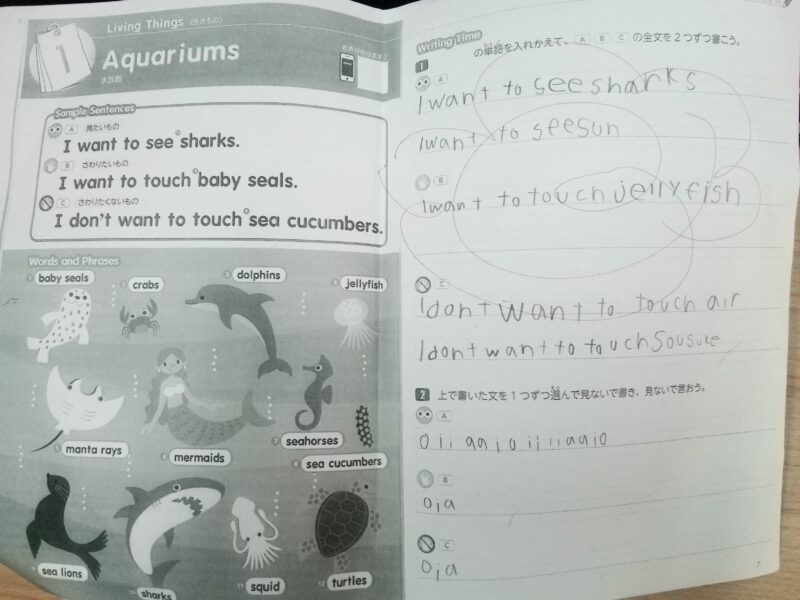 1
Living Things (生きもの)
Aquariums
水族館
音声がきけます♪
Sample Sentences
A 見たいもの
I want to see sharks.
B さわりたいもの
I want to touch baby seals.
C さわりたくないもの
I don't want to touch sea cucumbers.
Words and Phrases
1 baby seals
2 crabs
3 dolphins
4 jellyfish
5 manta rays
6 mermaids
7 seahorses
8 sea cucumbers
9 sea lions
10 sharks
11 squid
12 turtles
Writing Time
1 の単語を入れかえて、 A B C の全文を2つずつ書こう。
A
I want to see sharks
I want to see sun
B
I want to touch jellyfish
C
I dont want to touch air
I dont want to touch Sousuke
2 上で書いた文を1つずつ選んで見ないで書き、見ないで言おう。
A
B
oja
C
oja
7